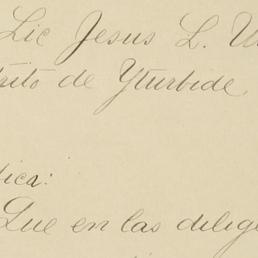 Lic Jesus L. U
rito de Yturbide
fica:
Que en las dilige